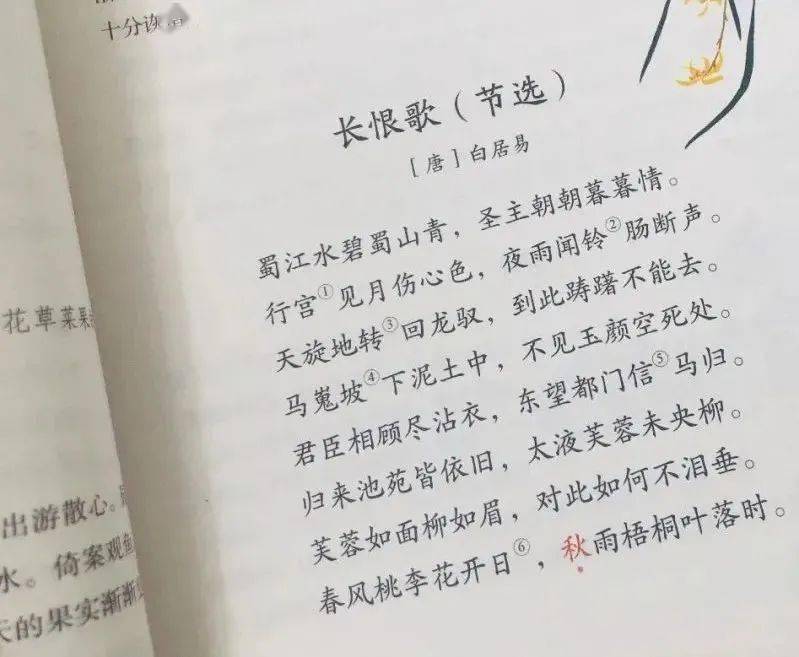 十分诙谐
花草菜果
出游散心。
水。倚案观鱼
天的果实渐渐
长恨歌（节选）
［唐］白居易
蜀江水碧蜀山青，圣主朝朝暮暮情。
行宫①见月伤心色，夜雨闻铃②肠断声。
天旋地转③回龙驭，到此踌躇不能去。
马嵬坡④下泥土中，不见玉颜空死处。
君臣相顾尽沾衣，东望都门信⑤马归。
归来池苑皆依旧，太液芙蓉未央柳。
芙蓉如面柳如眉，对此如何不泪垂。
春风桃李花开日⑥，秋雨梧桐叶落时。